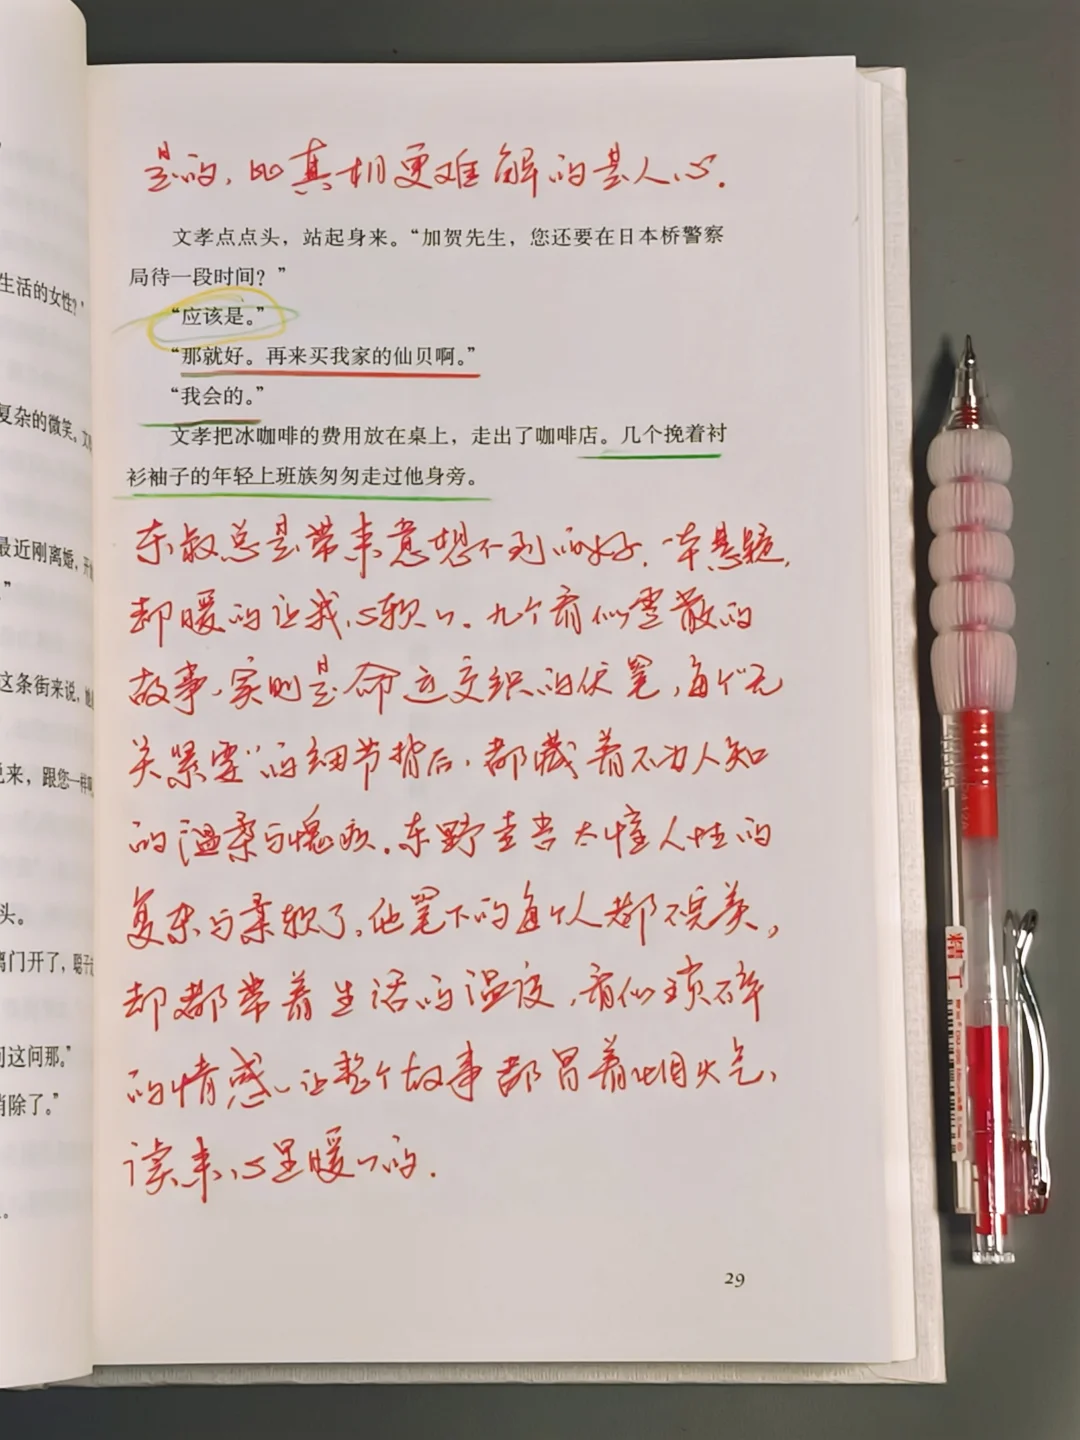 是的，比真相更难解的是人心.
文孝点点头，站起身来。“加贺先生，您还要在日本桥警察
局待一段时间？”
“应该是。”
“那就好。再来买我家的仙贝啊。”
“我会的。”
文孝把冰咖啡的费用放在桌上，走出了咖啡店。几个挽着衬
衫袖子的年轻上班族匆匆走过他身旁。
东叔总是带来意想不到的好.一本悬疑,
却暖的让我心软软.九个看似零散的
故事,实则是命运交织的伏笔,每个“无
关紧要”的细节背后,都藏着不为人知
的温柔与愧疚.东野圭吾太懂人性的
复杂与柔软了,他笔下的每个人都不完美,
却都带着生活的温度,看似琐碎
的情感、让整个故事都冒着烟火气,
读来心里暖暖的.
29
生活的女性？”
复杂的微笑。文
最近刚离婚，开
”
这条街来说，她
说来，跟您一样
头。
离门开了，聪子
问这问那。”
消除了。”
精工